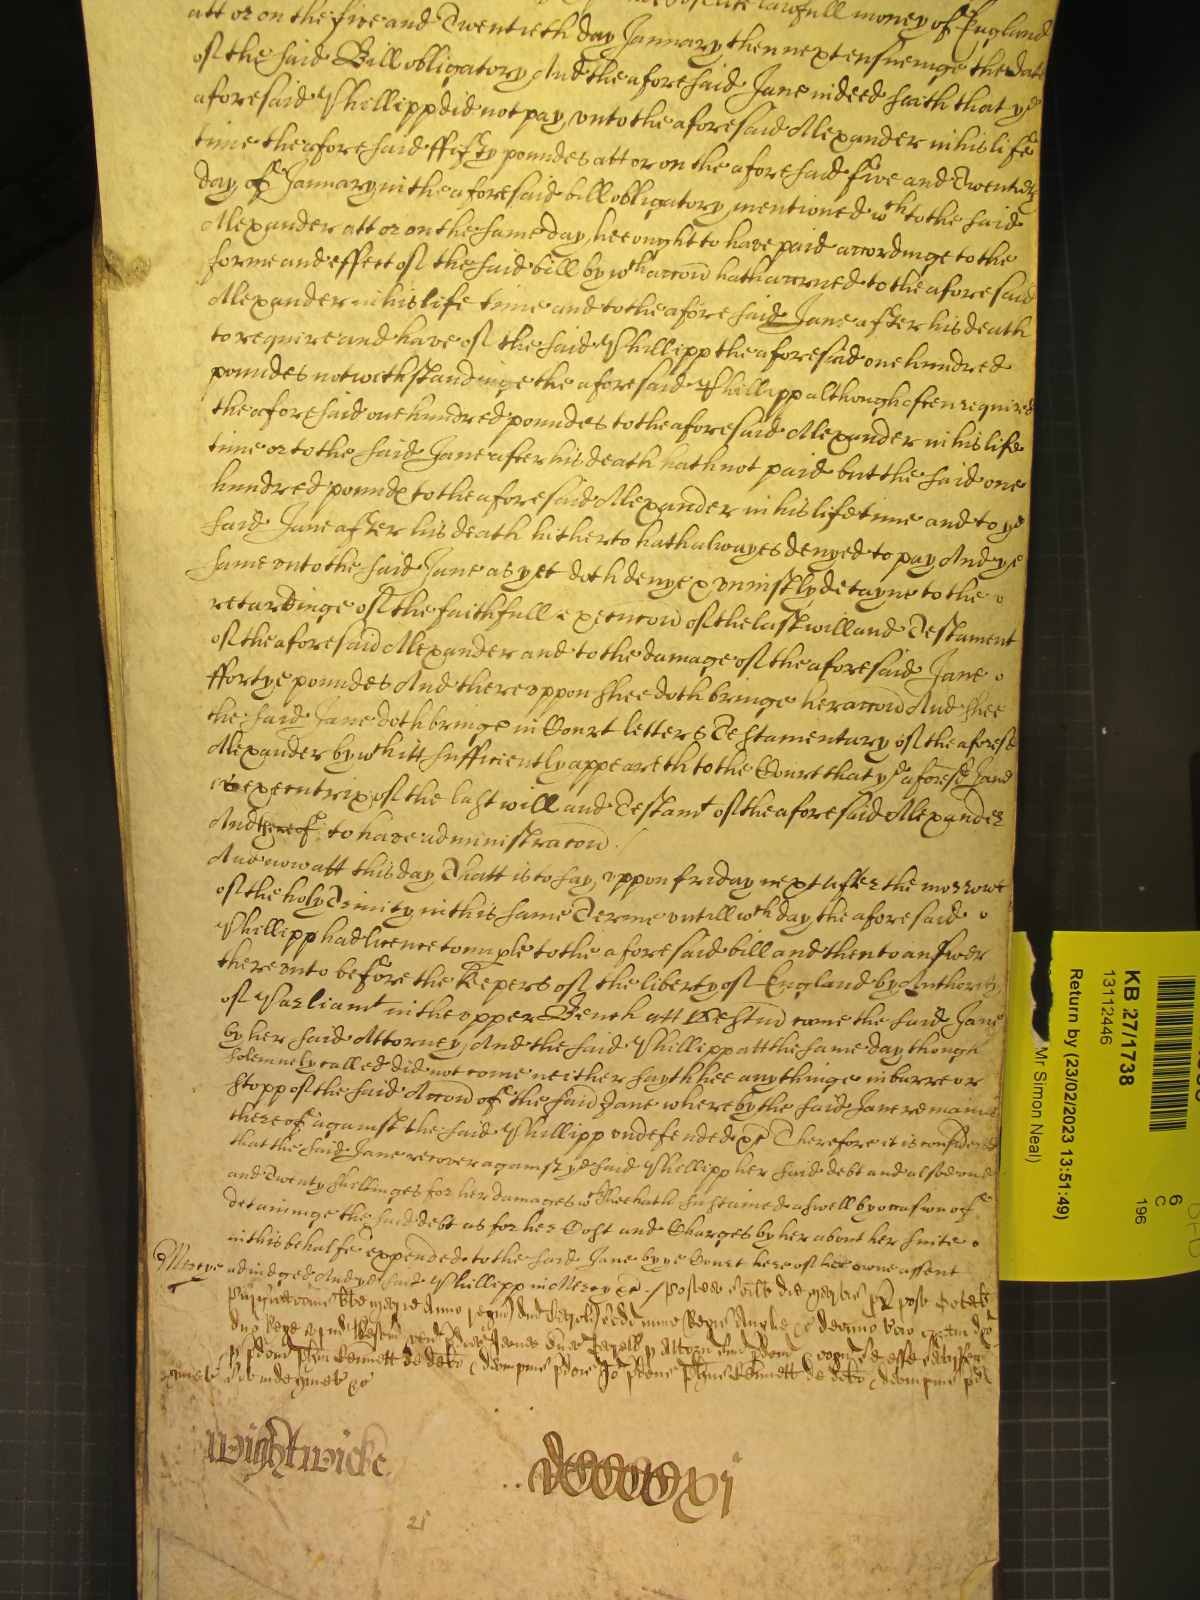 lawfull money of England
att or on the five and Twentieth day January then next ensueinge the date
of the said Bill obligatory And the aforesaid Jane indeed saith that ye
aforesaid Phillipp did not pay unto the aforesaid Alexander in his life
time the aforesaid ffifty poundes att or on the aforesaid five and Twentieth
day of January in the aforesaid bill obligatory mentioned wch to the said
Alexander att or on the same day hee ought to have paid accordinge to the
forme and effect of the said bill by wch accon hath accrued to the aforesaid
Alexander in his life time and to the aforesaid Jane after his death
to require and have of the said Phillipp the aforesaid one hundred
poundes notwithstandinge the aforesaid Phillipp although often required
the aforesaid one hundred poundes to the aforesaid Alexander in his life
time or to the said Jane after his death hath not paid but the said one
hundred pounds to the aforesaid Alexander in his lifetime and to ye
said Jane after his death hitherto hath alwayes denyed to pay And ye
same unto the said Jane as yet doth denye & uniustly detayne to the
retardinge of the faithfull execucon of the last will and Testament
of the aforesaid Alexander and to the damage of the aforesaid Jane
ffortye poundes And thereuppon shee doth bringe her accon And shee
the said Jane doth bringe in Court letters Testamentary of the aforesd
Alexander by wch itt sufficiently appeareth to the Court that ye aforesd Jane
is executrix of the last will and Testamt of the aforesaid Alexander
And thereof to have administracon /
And now att this day Thatt is to say uppon friday next after the morrowe
of the holy Trinity in this same Terme untill wch day the aforesaid
Phillipp had licence to imple to the aforesaid bill and then to answer
thereunto before the Keepers of the liberty of England by Authority
of Parliamt in the upper Bench att Westmr come the said Jane
by her said Attorney And the said Phillipp att the same day though
solemnely called did not come neither sayth hee any thinge in barre or
stopp of the said Accon of the said Jane whereby the said Jane remaines
thereof against the said Phillipp undefended &c Therefore it is considered
that the said Jane recover against ye said Phillipp her said debt and alsoe one
and Twenty shillinges for her damages wch shee hath sustained aswell by occasion of
detaininge the said debt as for her Cost and Charges by her about her suite
in this behalfe expended to the said Jane by ye Court here of her owne assent
Mercye adiudged And ye said Phillipp in Mercy &c /
Wightwicke
dccccxj
21
KB 27/1738
13112446
Return by (23/02/2023 13:51:49)
Mr Simon Neal)
196
C
6